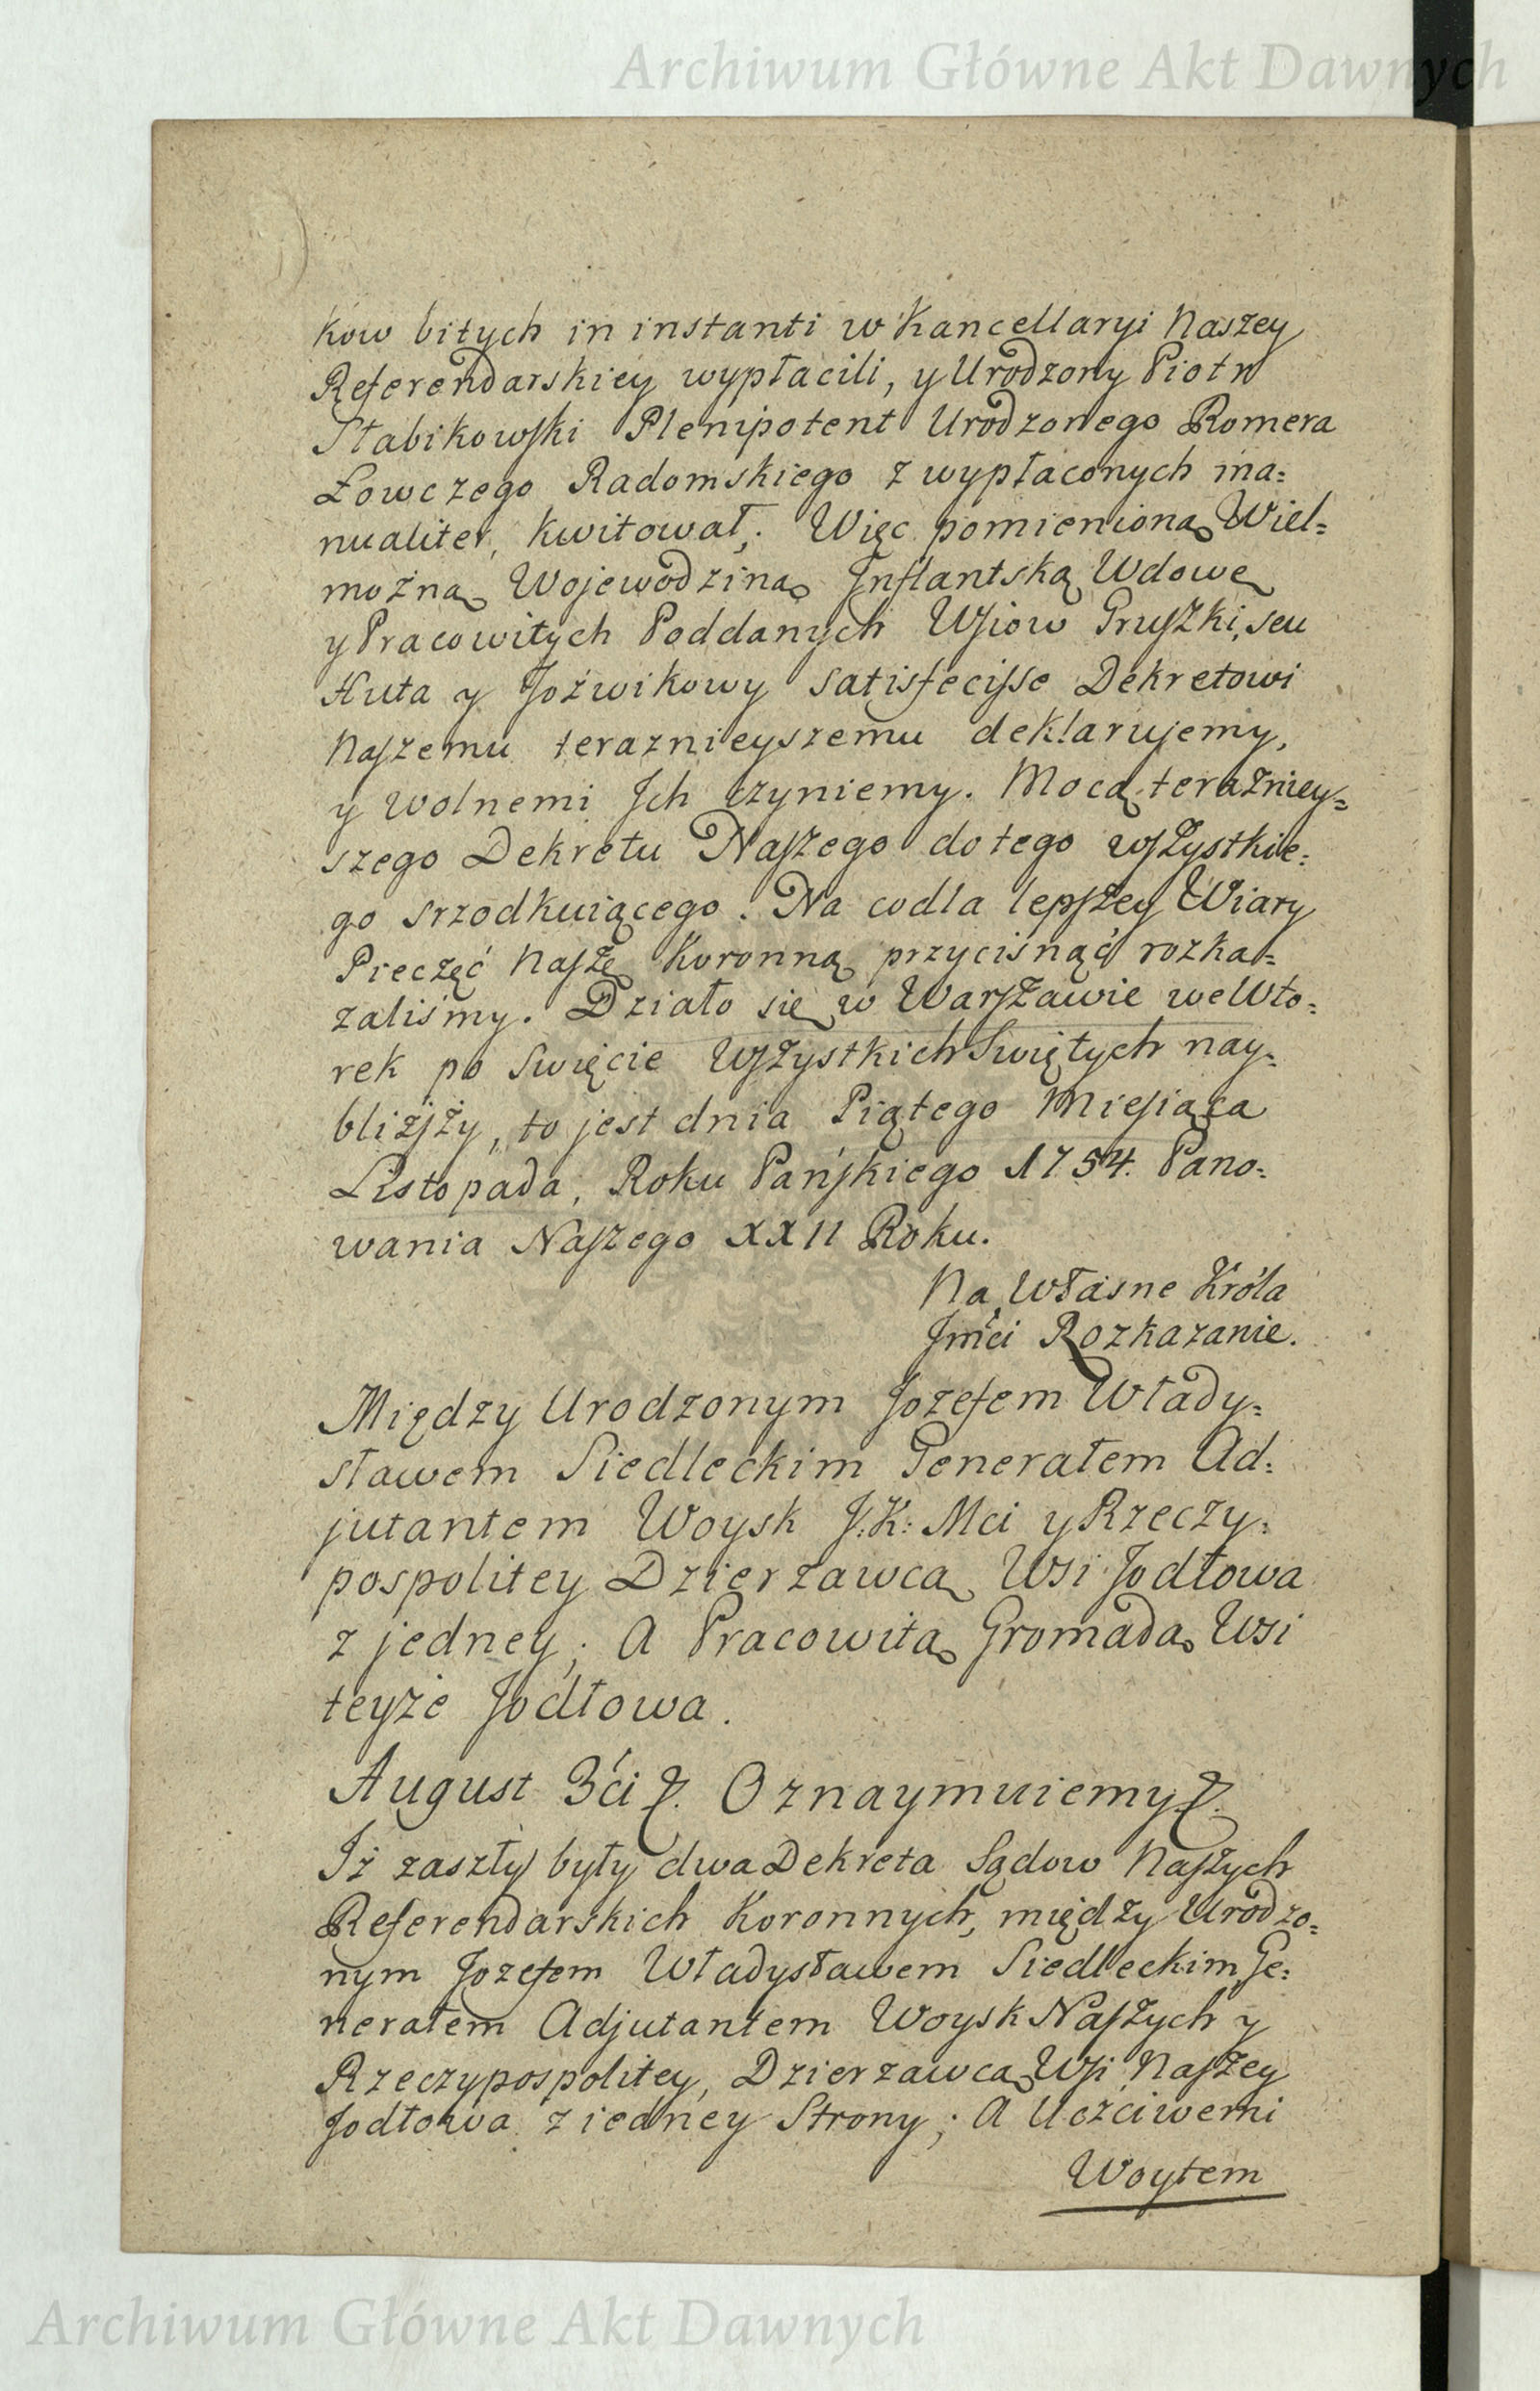 Archiwum Główne Akt Dawnych
kow bitych in instanti w Kancellaryi Naszey
Referendarskiey wypłacili, y Urodzony Piotr
Słabikowski Plenipotent Urodzonego Romera
Łowczego Radomskiego z wypłaconych ma=
nualiter, kwitował; Więc pomienioną Wiel=
możną Wojewodziną Inflantską Wdowę
y Pracowitych Poddanych Wsiow Gruszki, seu
Huta y Joźwikowy satisfecisse Dekretowi
Naszemu teraznieyszemu deklarujemy,
y wolnemi Ich czyniemy. Mocą teraźniey=
szego Dekretu Naszego do tego wszystkie=
go srzodkuiącego. Na co dla lepszey Wiary
Pieczęć Naszę Koronną przycisnąć rozka=
zaliśmy. Działo się w Warszawie we Wto=
rek po Swięcie Wszystkich Swiętych nay=
bliższy, to jest dnia Piątego Miesiąca
Listopada, Roku Pańskiego 1754. Pano=
wania Naszego XXII Roku.
Na Własne Króla
Jmći Rozkazanie.
Między Urodzonym Jozefem Włady=
sławem Siedleckim Generałem Ad=
jutantem Woysk J: K: Mci y Rzeczy=
pospolitey Dzierzawcą Wsi Jodłowa
z jedney; A Pracowitą Gromadą Wsi
teyże Jodłowa.
August 3ći &. Oznaymuiemy &.
Iż zaszły były dwa Dekreta Sądow Naszych
Referendarskich Koronnych, między Urodzo=
nym Jozefem Władysławem Siedleckim Ge=
nerałem Adjutantem Woysk Naszych y
Rzeczypospolitey, Dzierzawcą Wsi Naszey
Jodłowa z iedney Strony; A Uczciwemi
Woytem
Archiwum Główne Akt Dawnych